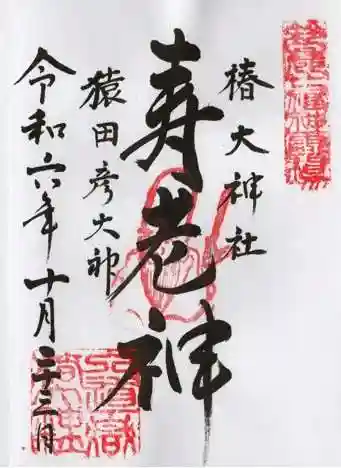 椿大神社
寿老神
猿田彦大神
令和六年十月二十三日